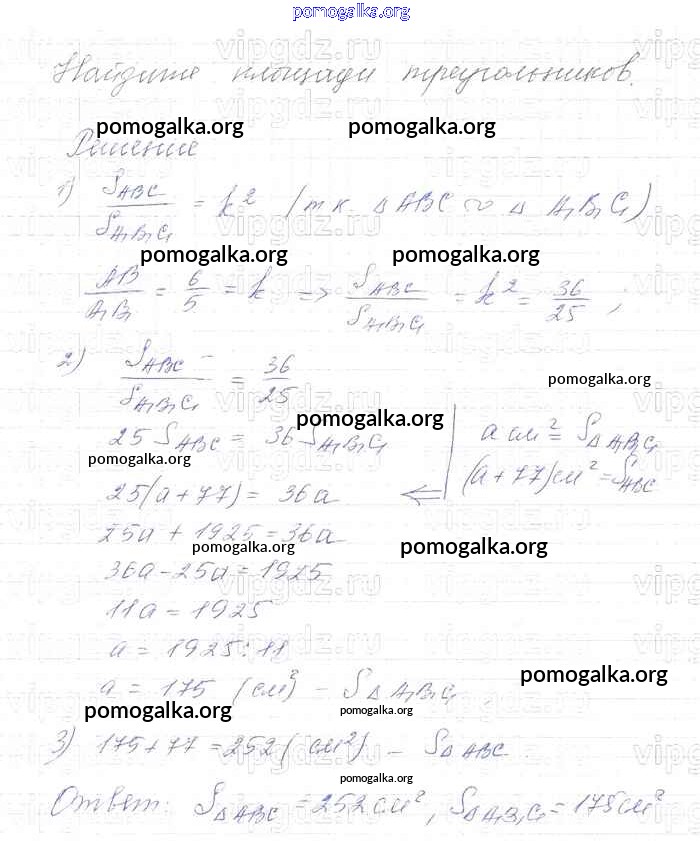 pomogalka.org
Найдите площади треугольников.
pomogalka.org pomogalka.org
Решение
1) S_ABC / S_A₁B₁C₁ = k² /т.к. △ ABC ∾ △ A₁B₁C₁)
pomogalka.org pomogalka.org
AB / A₁B₁ = 6/5 = k => S_ABC / S_A₁B₁C₁ = k² = 36/25 ;
2) S_ABC / S_A₁B₁C₁ = 36/25
pomogalka.org
pomogalka.org
25 S_ABC = 36 S_A₁B₁C₁ a см² = S_△A₁B₁C₁
pomogalka.org
25(a + 77) = 36a <= (a + 77) см² = S_ABC
25a + 1925 = 36a
pomogalka.org pomogalka.org
36a - 25a = 1925
11a = 1925
a = 1925 : 11
pomogalka.org
a = 175 (см²) - S_△A₁B₁C₁
pomogalka.org pomogalka.org
3) 175 + 77 = 252 (см²) - S_△ABC
pomogalka.org
Ответ: S_△ABC = 252 см², S_△A₁B₁C₁ = 175 см²
vipgdz.ru